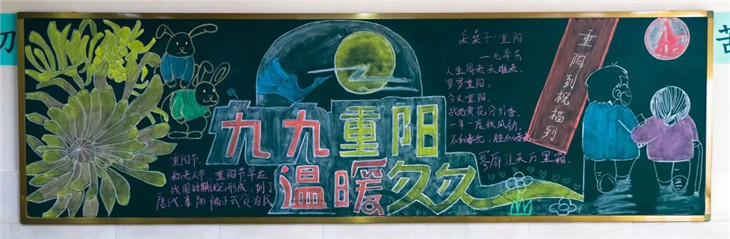 九九重阳
温暖久久
采桑子·重阳
—毛泽东
人生易老天难老,
岁岁重阳,
今又重阳,
战地黄花分外香。
一年一度秋风劲,
不似春光,胜似春光,
寥廓江天万里霜。
重阳到祝福到
重阳节,
称老人节,重阳节早在
战国时期
唐代,重阳
苦